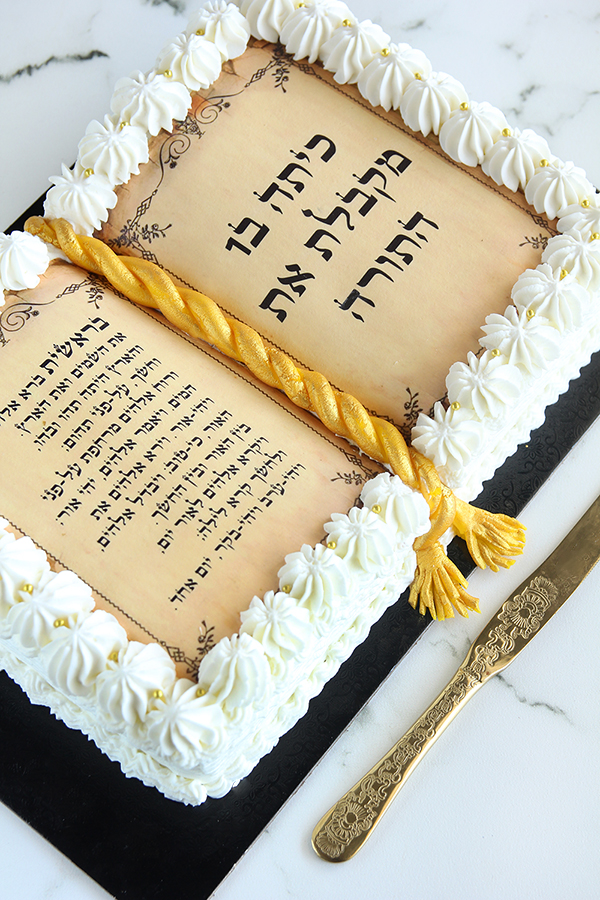 כיתה בו
מקבלת את
התורה
בראשית ברא
את השמים ואת הארץ
והארץ היתה תהו ובהו
וחשך על פני תהום
ורוח אלהים מרחפת על פני
המים ויאמר אלהים יהי אור
ויהי אור וירא אלהים את
האור כי טוב ויבדל אלהים
בין האור ובין החשך
ויקרא אלהים לאור יום
ולחשך קרא לילה
ויהי ערב ויהי בקר יום אחד